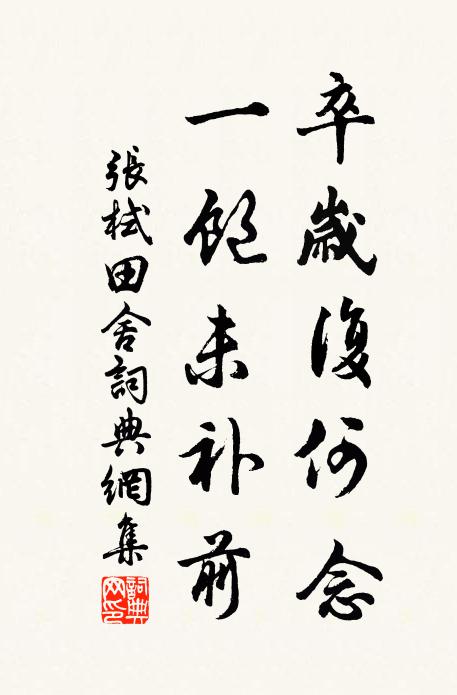 卒歲復何念
一飽未补前
張栻田舍詞典網集
詞典网印